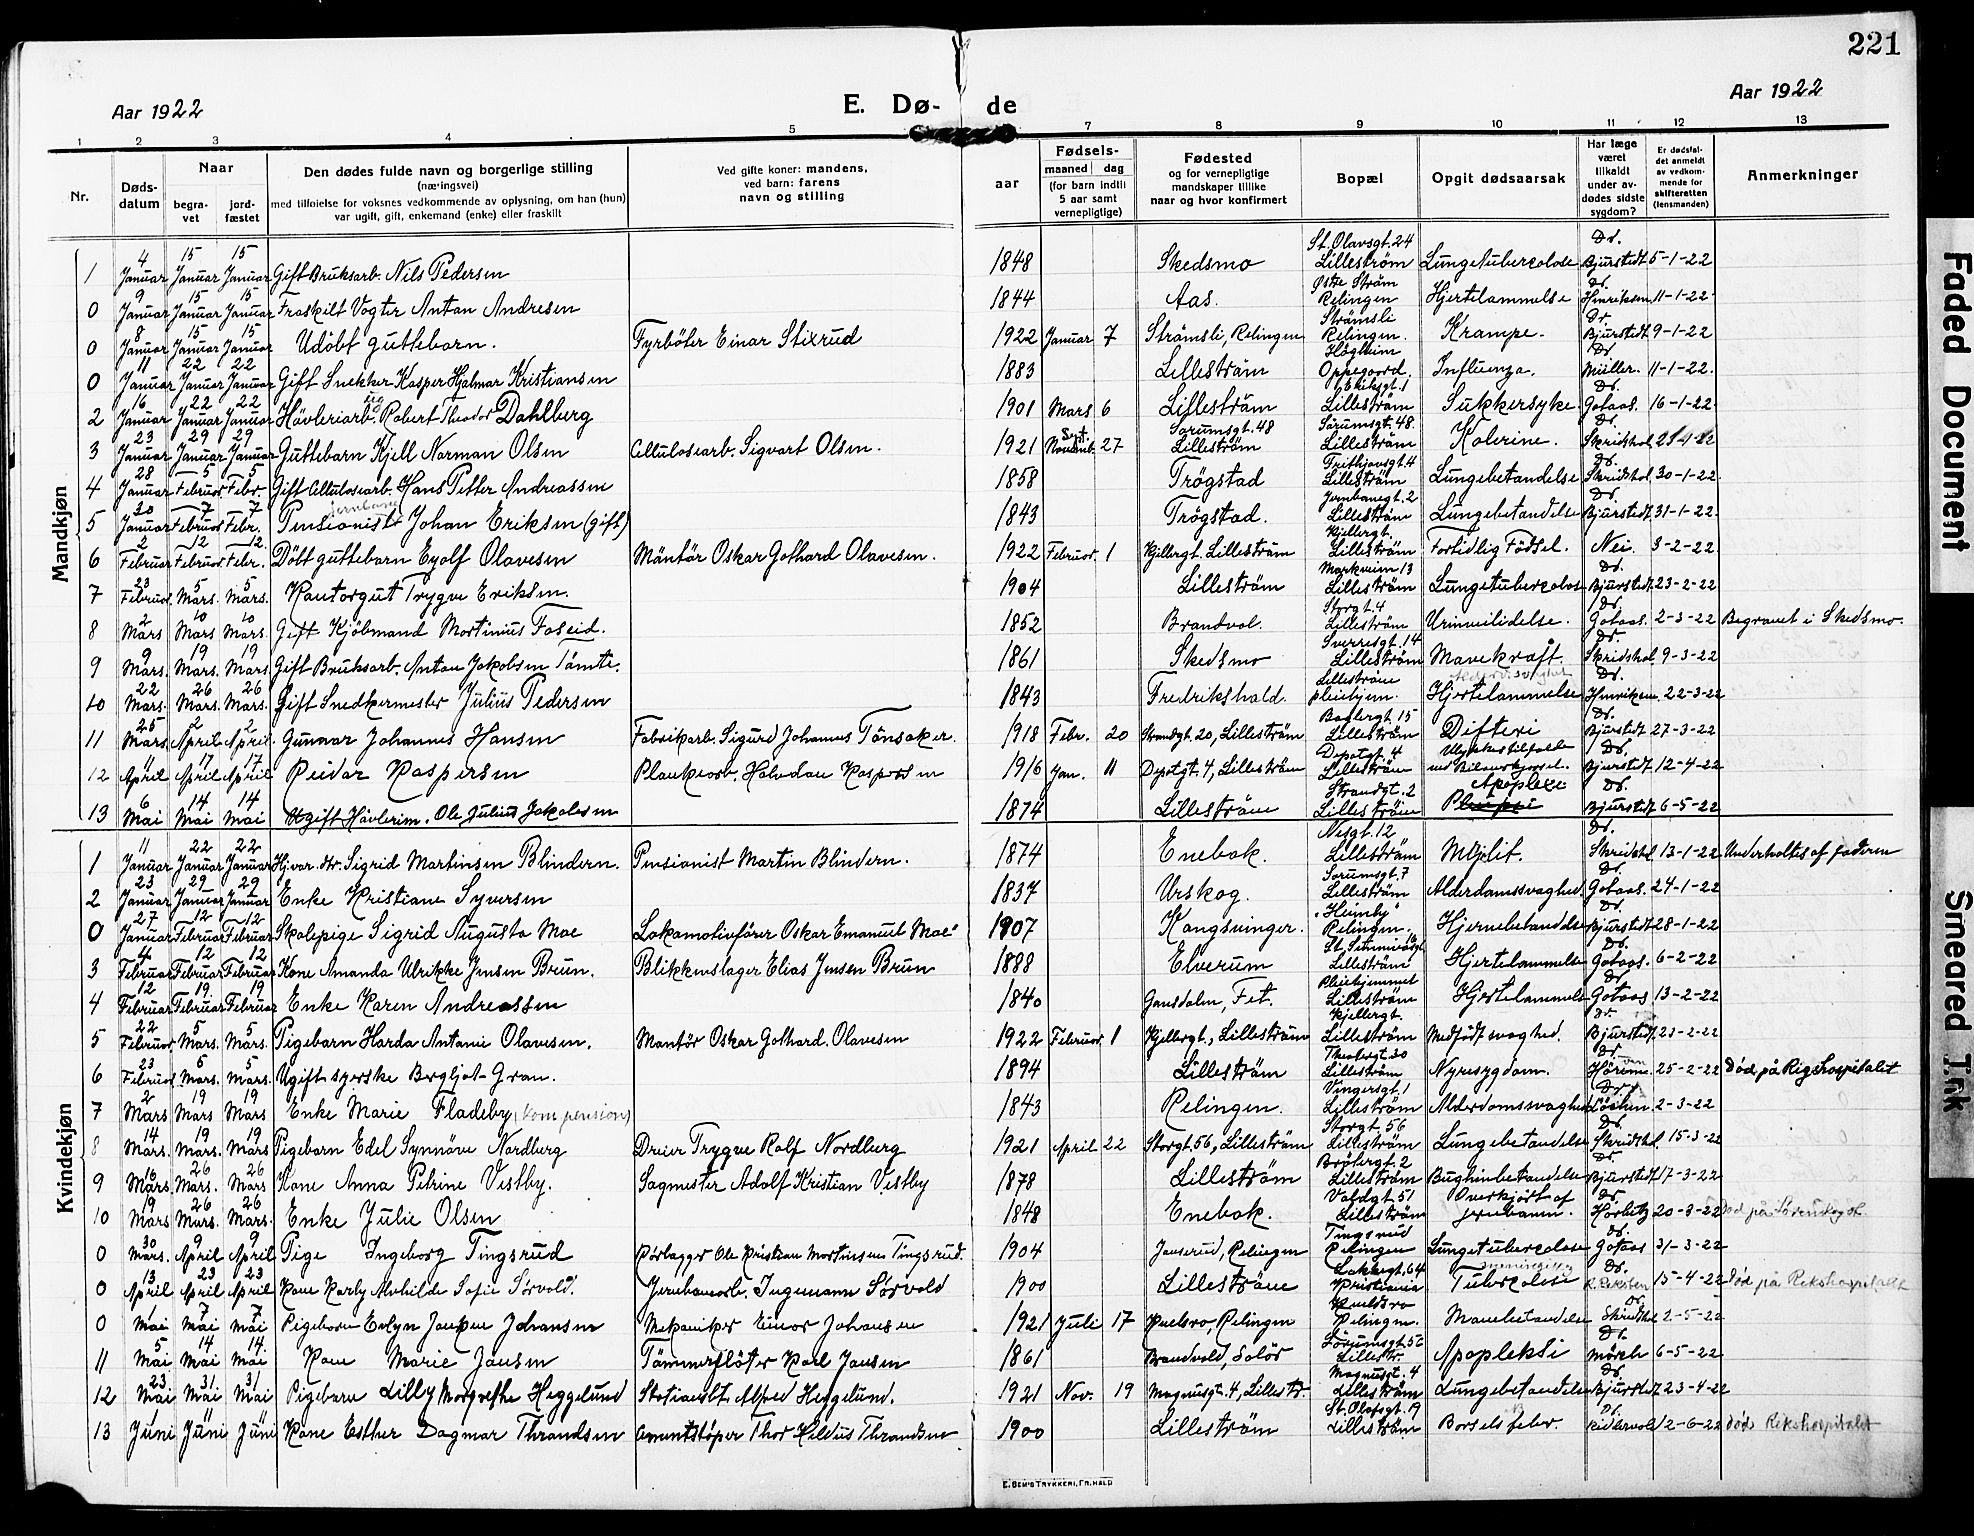 221
Aar 1922
E. Dø- de
Aar 1922
1 2 3 4 5 7 8 9 10 11 12 13
Nr.
Dødsdatum
Naar
begravet
jordfæstet
Den dødes fulde navn og borgerlige stilling
(næringsvei)
med tilføielse for voksnes vedkommende av oplysning, om han (hun)
var ugift, gift, enkemand (enke) eller fraskilt
Ved gifte koner: mandens,
ved barn: farens
navn og stilling
aar
Fødsels-
maaned dag
(for barn indtil
5 aar samt
vernepligtige)
Fødested
og for vernepligtige
mandskaper tillike
naar og hvor konfirmert
Bopæl
Opgit dødsaarsak
Har læge
været
tilkaldt
under av-
dødes sidste
sygdom?
Er dødsfal-
det anmeldt
av vedkom-
mende for
skifteretten
(lensmanden)
Anmerkninger
Mandkjøn
1 4 Januar 15 Januar 15 Januar Gift Bruksarb. Nils Pedersen 1848 Skedsmo St. Olavsgt. 24 Lilleström Lungetuberculose Dr. Bjurstedt 5-1-22
0 9 Januar 15 Januar 15 Januar Fraskilt Vogter Anton Andresen 1844 Aas. Østre Ström Relingen Hjertelammelse Dr. Hinriksen 11-1-22
0 8 Januar 15 Januar 15 Januar Udöbt guttebarn. Fyrböter Einar Stixrud 1922 Januar 7 Strömsli, Relingen Strömsli Relingen. Krampe. Dr. Bjurstedt 9-1-22
0 11 Januar 22 Januar 22 Januar Gift Snekker Kasper Hjalmar Kristiansen 1883 Lilleström Høgheim Oppegaard. Influenza. Dr. Müller. 11-1-22.
2 16 Januar 22 Januar 22 Januar Hövleriarb. Robert Theodor Dahlberg 1901 Mars 6 Lilleström Lilleström Sukkersyke. Dr. Gotaas. 16-1-22.
3 23 Januar 29 Januar 29 Januar Guttebarn Kjell Norman Olsen Cellulosearb. Sigvart Olsen. 1921 Sept. 27 Sørumsgt. 48 Lilleström Sørumsgt. 48. Lilleström Kolerine. Dr. Skridshol
4 28 Januar 5 Februar 5 Febr. Gift Cellulosearb. Hans Petter Andreassen 1858 Trögstad Frithjovsgt. 4 Lilleström Lungebetændelse Dr. Skridshol 30-1-22
5 30 Januar 7 Februar 7 Febr. Pensionist Johan Eriksen (gift) 1843 Trögstad. Jernbanegt. 2 Lilleström Lungebetændelse Dr. Bjurstedt 31-1-22
6 2 Februar 12 Februar 12 Febr. Döbt guttebarn Eyolf Olavesen Möntör Oskar Gothard Olavesen. 1922 Februar. 1 Kjellergt. Lilleström Kjellergt. Lilleström Fortidlig Födsel. Nei. 3-2-22
7 23 Februar 5 Mars. 5 Mars. Kontorgut Trygve Eriksen. 1904 Lilleström Markveien 13 Lilleström Lungetuberculose Dr. Bjurstedt 23-2-22
8 2 Mars 10 Mars 10 Mars. Gift Kjöbmand Martinius Foseid. 1852 Brandval. Storgt. 4 Lilleström Urinveilidelse. Dr. Gotaas. 2-3-22 Begravet i Skedsmo.
9 9 Mars. 19 Mars. 19 Mars Gift Bruksarb. Anton Jakobsen Tömte. 1861 Skedsmo Sverresgt. 14 Lilleström Mavekræft. Dr. Skridshol 9-3-22
10 22 Mars. 26 Mars. 26 Mars. Gift Snedkermester Julius Pedersen 1843 Fredrikshald. Lilleström pleiehjem. Hjertelammelse Dr. Hinriksen. 22-3-22
11 25 Mars. 2 April 2 April. Gunnar Johannes Hansen Fabrikarb. Sigurd Johannes Tönsaker. 1918 Febr. 20 Strandgt. 20, Lilleström Lilleström Difteri Dr. Bjurstedt 27-3-22
12 11 April 17 April 17 April Reidar Kaspersen Plankearb. Halvdan Kaspersen 1916 Jan. 11 Depotgt. 4, Lilleström Depotgt. 4 Lilleström Ulykkestilfælde ved Bilomkjørsel. Dr. Bjurstedt 12-4-22
13 6 Mai 14 Mai 14 Mai Ugift Hövlerim. Ole Julius Jakobsen 1874 Lilleström Strandgt. 2 Lilleström Apoplexi Dr. Bjurstedt 6-5-22
Kvindekjøn
1 11 Januar 22 Januar 22 Januar Hjvær. dtr. Sigrid Martinsen Blindern. Pensionist Martin Blindern. 1874 Enebak. Nesgt. 12 Lilleström Myelit. Dr. Skridshol 13-1-22 Underholdtes af faderen
2 23 Januar 29 Januar 29 Januar Enke Kristiane Syversen 1837 Urskog. Sørumsgt. 7 Lilleström Alderdomssvaghed Dr. Gotaas. 24-1-22
0 27 Januar 12 Februar 12 Februar Skolepige Sigrid Augusta Moe Lokomotivfører Oskar Emanuel Moe 1907 Kongsvinger. "Heimby" Relingen. Hjernebetændelse Dr. Bjurstedt 28-1-22
3 4 Februar 12 Februar 12 Februar Kone Amanda Ulrikke Jensen Brun. Blikkenslager Elias Jensen Brun 1888 Elverum Lilleström Hjertelammelse Dr. Gotaas. 6-2-22
4 12 Februar 19 Februar 19 Februar Enke Karen Andreassen 1840 Gansdalen, Fet. Pleiehjemmet Lilleström Hjertelammelse Dr. Gotaas 13-2-22
5 22 Februar 5 Mars. 5 Mars. Pigebarn Harda Antonie Olavesen. Montör Oskar Gothard. Olavesen 1922 Februar. 1 Kjellergt., Lilleström Kjellergt. Lilleström Medfödt svaghed. Dr. Bjurstedt. 23-2-22
6 23 Februar 5 Mars. 5 Mars. Ugift syerske Bergljot Gran. 1894 Lilleström Lilleström Nyresygdom. Dr. 25-2-22 Död på Rigshospitalet
7 2 Mars 19 Mars 19 Mars Enke Marie Fladeby (kom pension) 1843 Relingen. Vingersgt. 1 Lilleström Alderdomssvaghed Dr. Löchen 2-3-22
8 14 Mars. 19 Mars. 19 Mars. Pigebarn Edel Synnöve Nordberg Dreier Trygve Rolf Nordberg 1921 April 22 Storgt 56, Lilleström Storgt. 56 Lilleström Lungebetændelse Dr. Skridshol. 15-3-22
9 16 Mars. 26 Mars. 26 Mars Kone Anna Petrine Vestby. Sagmester Adolf Kristian Vestby 1878 Lilleström Lilleström Bughinnebetændelse Dr. Bjurstedt 17-3-22
10 19 Mars 26 Mars. 26 Mars. Enke Julie Olsen 1848 Enebak. Voldgt. 51 Lilleström Overkjört af jernbanen. Dr. Horbitz 20-3-22
0 30 Mars. 9 April 9 April Pige Ingeborg Tingsrud Rørlægger Ole Kristian Martinsen Tingsrud. 1904 Relingen Tingsrud Relingen Lungetuberculose Dr. Gotaas 31-3-22
0 13 April 23 April 23 April Kone Karly Alvhilde Sofie Sørvold. Jernbanearb. Ingemann Sørvold 1900 Lilleström Lakkegt. 64 Kristiania Tuberculose Dr. 15-4-22 Död på Rikshospitalet
0 1 Mai 7 Mai 7 Mai Pigebarn Evlyn Johansen Mekaniker Einar Johansen 1921 Juli 17 Relingen Relingen. Mavebetændelse Dr. Skridshol 2-5-22
11 5 Mai 14 Mai 14 Mai Kone Marie Jansen Tömmerflöter Karl Jansen 1861 Brandvold, Solör Sørumsgt. 56 Lillestr. Apopleksi Dr. Mörch 6-5-22
12 23 Mai 31 Mai 31 Mai Pigebarn Lilly Margrethe Heggelund Alfred Heggelund. 1921 Nov. 19 Magnusgt. 4, Lillestr. Magnusgt. 4 Lilleström Lungebetændelse Dr. Bjurstedt 23-4-22
13 Juni Juni Juni Kone Esther Dagmar Thrandsen Thor Hildus Thrandsen 1900 Lilleström St. Olafsgt. 19 Lilleström Barselsfeber. Dr. 12-6-22 död Rikshospitalet
E. Sem's Trykkeri, Fr.hald
Faded Document
Smeared Ink